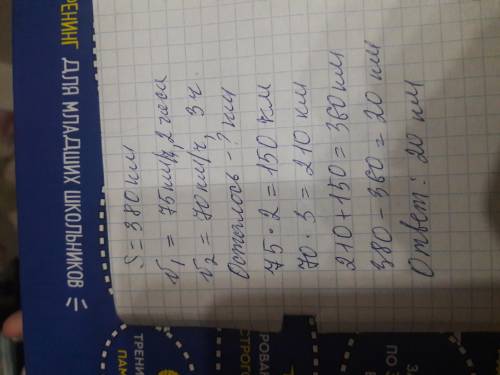 РЕНИНГ ДЛЯ МЛАДШИХ ШКОЛЬНИКОВ
S = 380 км
v₁ = 75 км/ч, 2 часа
v₂ = 70 км/ч, 3 ч.
Осталось - ? км
75 · 2 = 150 км
70 · 3 = 210 км
210 + 150 = 360 км
380 - 360 = 20 км
Ответ: 20 км
ТРЕНИ
ПАМ
РОВАН
СТРОГО
ЗА
ПО